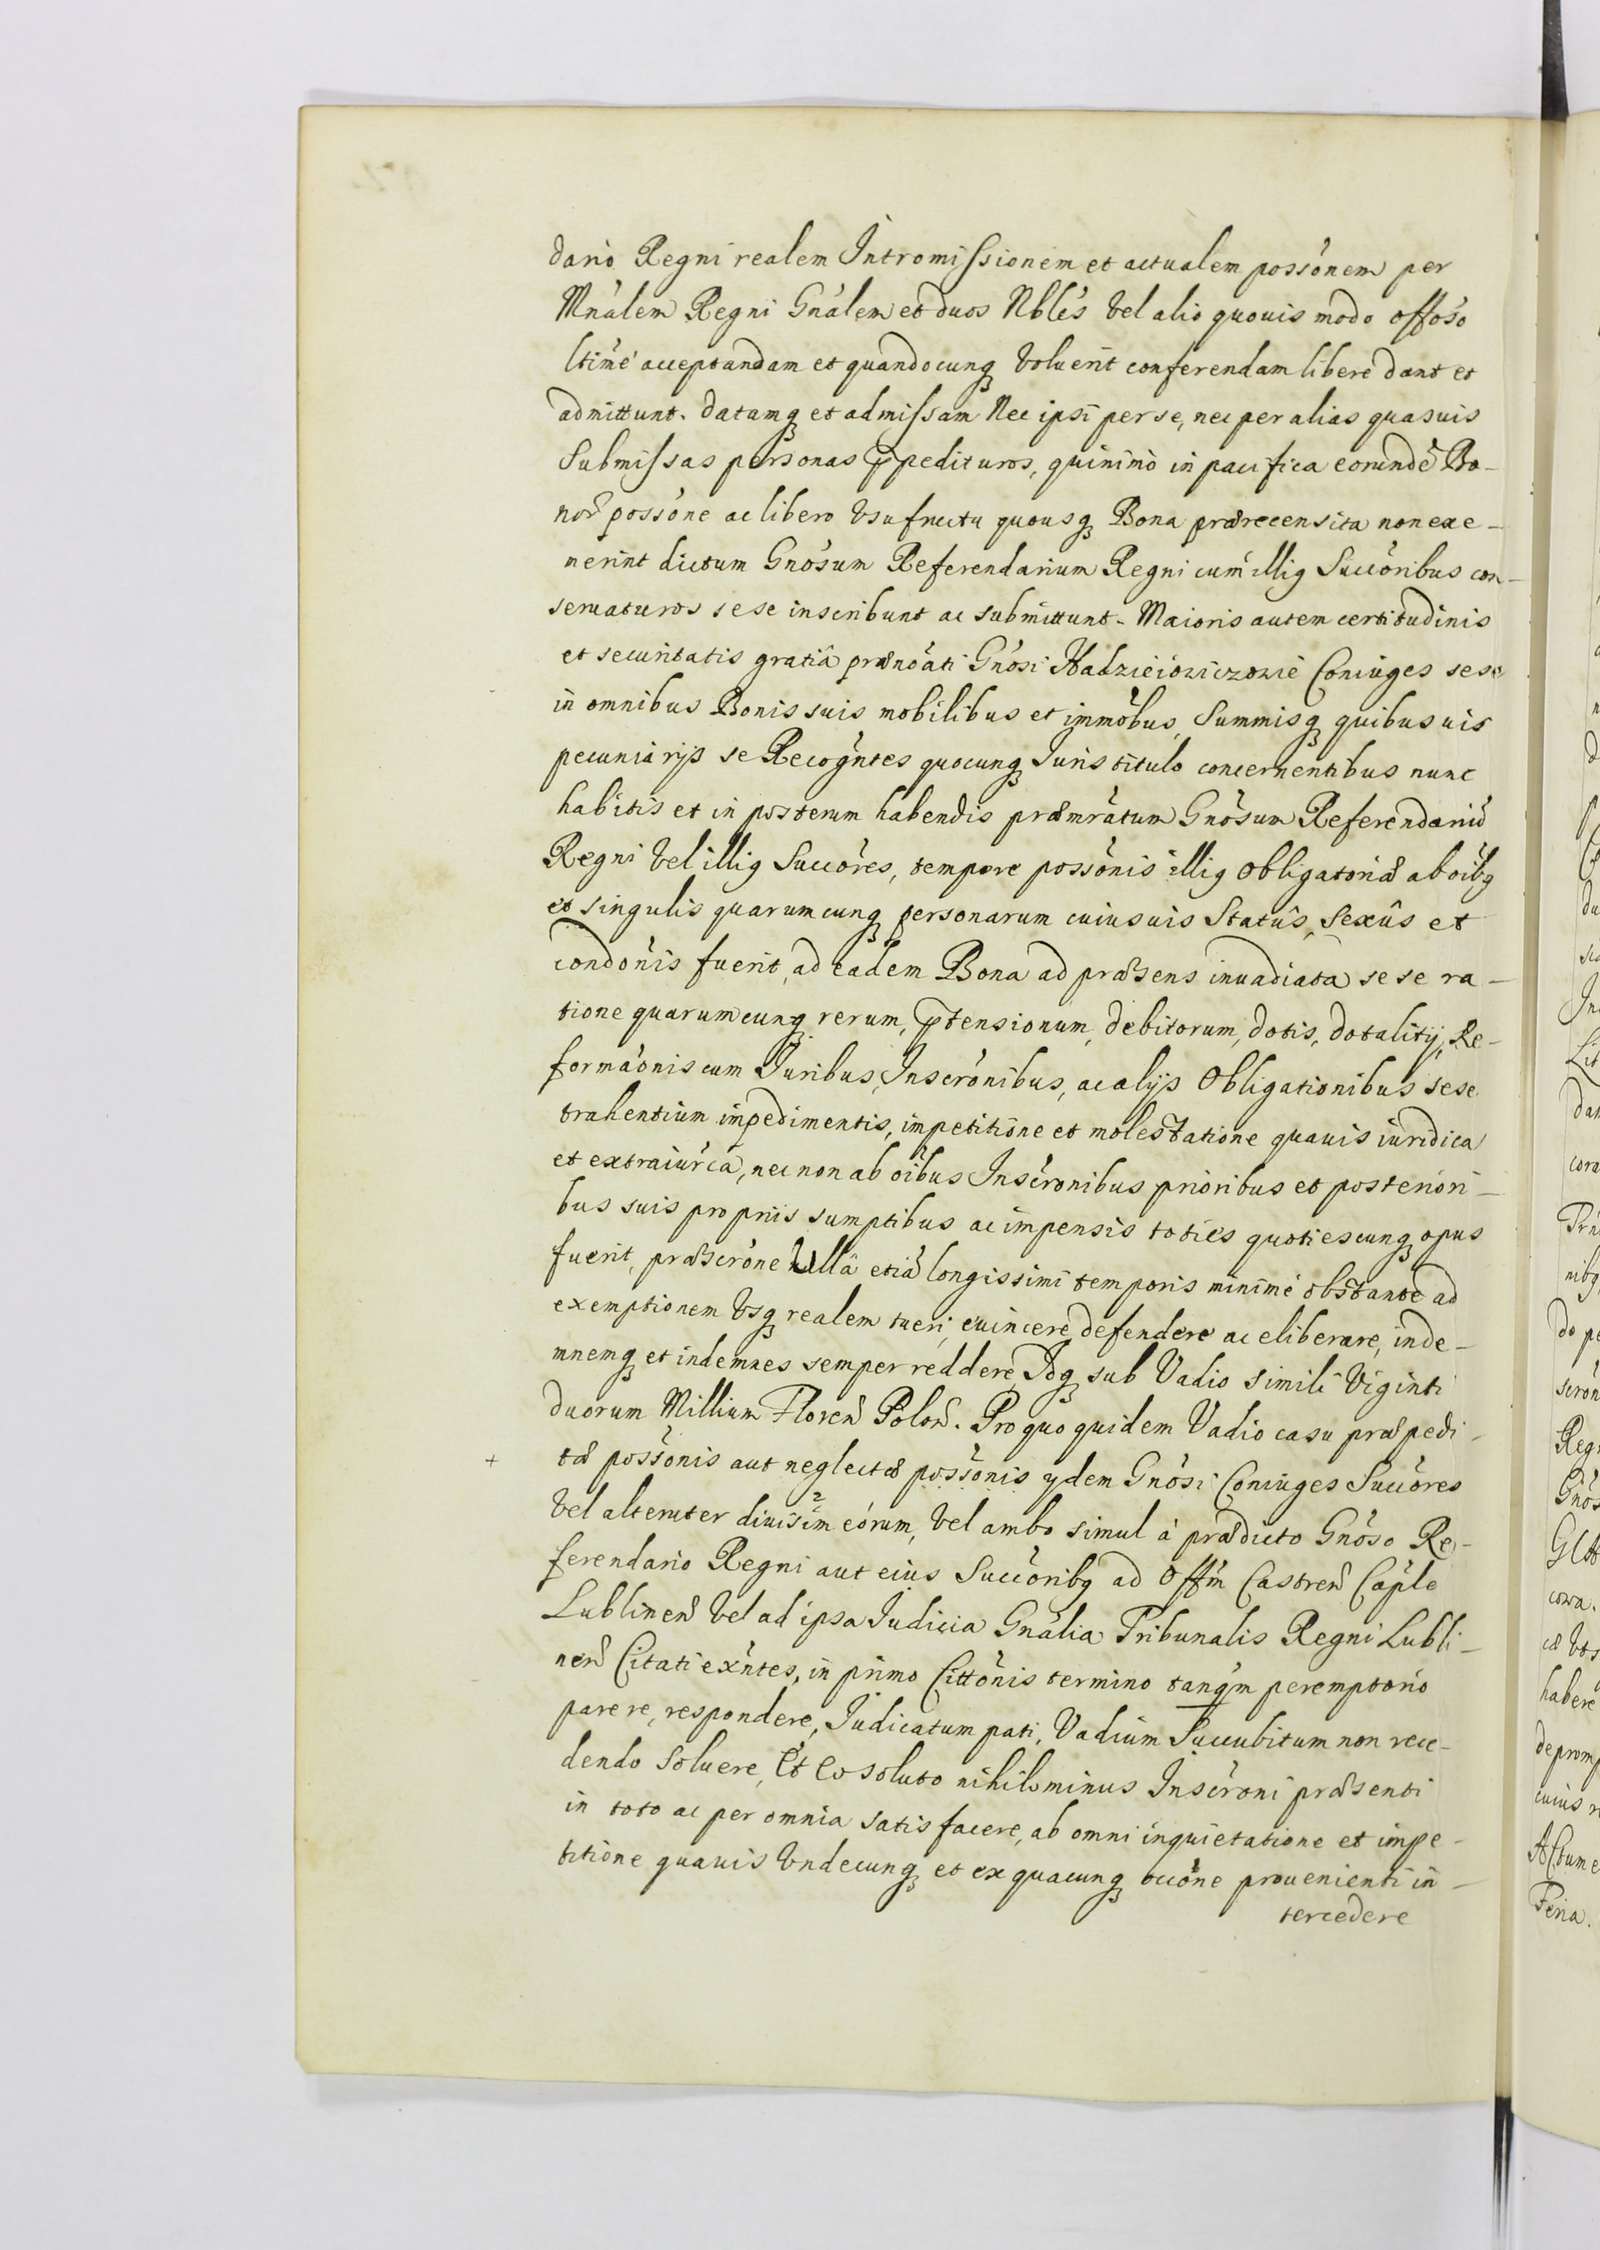 dario Regni realem Intromissionem et actualem possönem per
Mnälem Regni Gnälem et duos Nblës vel alio quouis modo offöso
ltimë acceptandam et quandocunq voluerit conferendam libere dant et
admittunt. datamq et admissam Nec ipsi per se, nec per alias quasuis
Submissas personas p̄pedituros, quinimò in pacifica eorundē Bo-
nor̄ possöne ac libero Vsufructu quousq Bona præcensita non exe-
merint dictum Gnösum Referendarium Regni cum illig Succöribus con-
seruaturos sese inscribunt ac submittunt. Maioris autem certitudinis
et securitatis gratiâ prænöati Gnösi Hadzieiowiczowie Coniuges sese
in omnibus Bonis suis mobilibus et immöbus, Summisq quibusuis
pecuniarijs se Recogntes quocunq Iuris titulo concernentibus nunc
habitis et in posterum habendis præmrätum Gnösum Referendariū
Regni vel illig Succöres, tempore possönis illig obligatoriæ ab oibq
et singulis quarumcunq personarum cuiusuis Statûs, Sexûs et
condönis fuerit, ad eadem Bona ad præsens inuadiata sese ra-
tione quarumcunq rerum, p̄tensionum, debitorum, dotis, dotalitij, Re-
formäonis cum Iuribus, Inscrönibus, ac alijs Obligationibus sese
trahentium impedimentis, impetitione et molestatione quauis iuridica
et extraiurca, nec non ab oibus Inscronibus prioribus et posteriori-
bus suis proprijs sumptibus ac impensis toties quotiescunq opus
fuerit, præscröne Ullâ etiā longissimi temporis minimè obstante ad
exemptionem Vsq realem tueri, euincere, defendere ac eliberare, inde-
mnemq et indemnes semper reddere, Idq sub Vadio simili Viginti
duorum Millium Floren̄ Polon̄. Pro quo quidem Vadio casu præpedi-
+ tæ possönis aut neglectæ possönis ydem Gnösi Coniuges Succöres
Vel alteruter diuisim eorum, Vel ambo simul à prædicto Gnöso Re-
ferendario Regni aut eius Succöribq ad Offm̄ Castren̄ Cäple
Lublinen̄ vel ad ipsa Iudicia Gnälia Tribunalis Regni Lubli-
nen̄ Citati exntes, in primo Cittönis termino tanqm peremptorio
parere, respondere, Iudicatum pati, Vadium Succubitum non rece-
dendo soluere, Et Eo soluto nihilominus Inscröni præsenti
in toto ac per omnia satisfacere, ab omni inquietatione et impe-
titione quauis Vndecunq et ex quacunq occöne prouenienti in-
tercedere